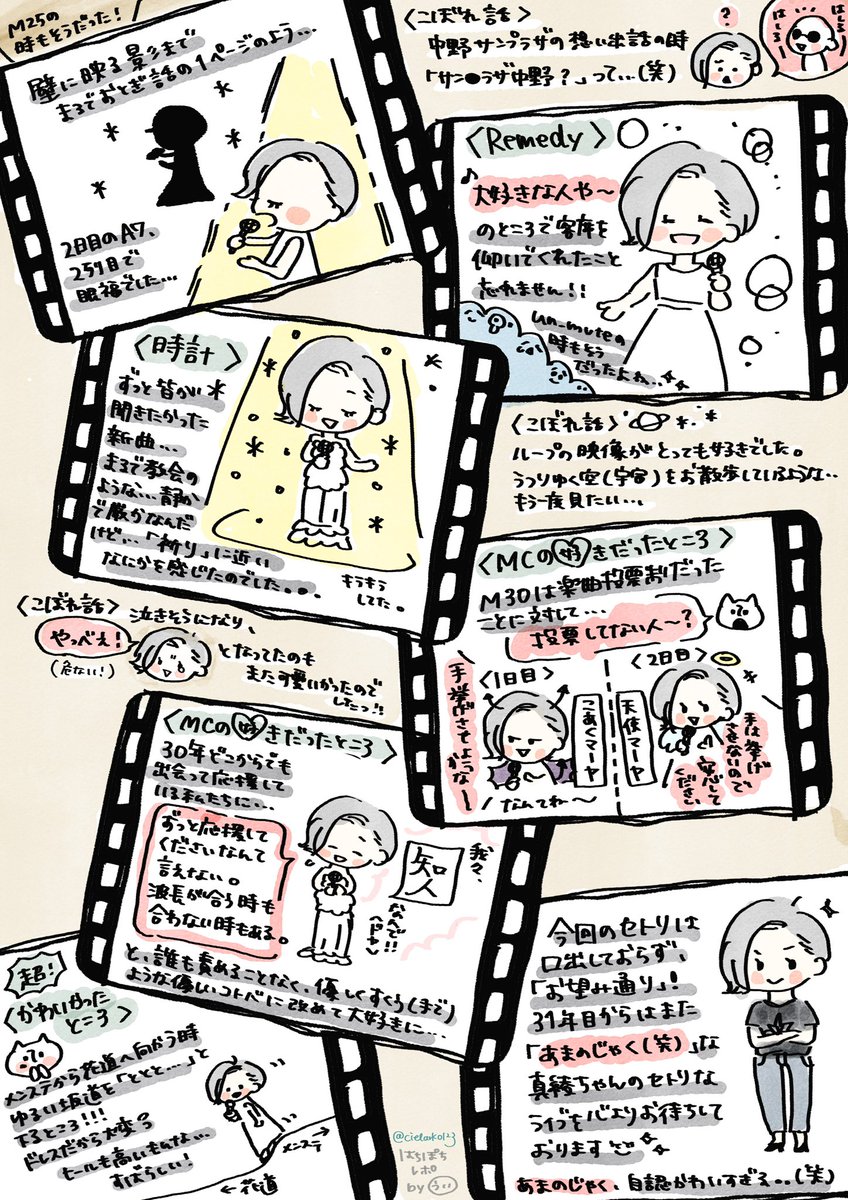 M25の
時もそうだった!
壁に映る影まで
まるでおとぎ話の1ページのよう…
2日目のA7、
25列目で
眼福でした…
〈こぼれ話〉
中野サンプラザの想い出話の時
「サン●ラザ中野?」って…(笑)
?
はしる〜
はしる〜
〈Remedy〉
♪
大好きな人や〜
のところで客席を
仰いでくれたこと
忘れません!!
un_muteの
時もそう
だったよね…
〈時計〉
ずっと皆がい
聞きたかった
新曲…
まるで教会の
ような…静か
で厳かなんだ
けど…「祈り」に近い
なにかを感じたのでした。。
キラキラ
してた。
〈こぼれ話〉
ループの映像がとっても好きでした。
うつりゆく空(宇宙)をお散歩しているような..
もう一度見たい…
〈こぼれ話〉泣きそうになり、
やっべぇ!
(危ない!)
となってたのも
また可愛かったので
したっ!!
〈MCの好きだったところ〉
M30は楽曲投票制だった
ことに対して…
投票してない人〜?
〈1日目〉
手挙げさせようかな〜
こあくマーヤ
なんてね〜
〈2日目〉
天使マーヤ
手は挙げ
させないので、
安心して
ください
〈MCの好きだったところ〉
30年どこからでも
出会って応援して
いる私たちに…
ずっと応援して
くださいなんて
言えない。
波長が合う時も
合わない時もある。
我々、
知人
なんで!!
(ドヤ)
と、誰も責めることなく、優しくすくう(まで)
ような優しいコトバに改めて大好きに…
超!
〈かわいかった
ところ〉
メンステから花道へ向かう時
ゆるい坂道を「ととと…」と
下るところ!!!
ドレスだから大変そう
ヒールも高いもんな…
すばらしい!
メンステ
←花道
@cielarko123
はちぽち
レポ
by うい
今回のセトリは
口出しておらず、
「お望み通り」!
31年目からはまた
「あまのじゃく(笑)」な
真綾ちゃんのセトリな
ライブを心よりお待ちして
おります
あまのじゃく、自認かわいすぎる…(笑)